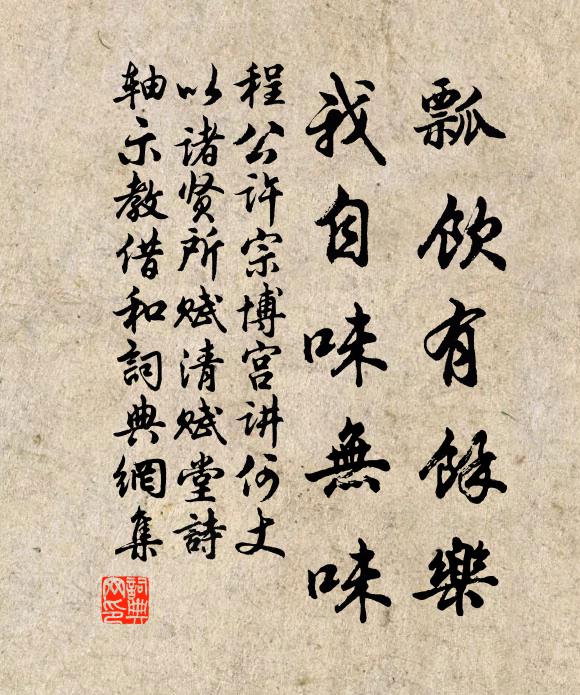 瓢飲有餘樂
我自味無味
程公许宗博宫讲何丈
以诸贤所赋清赋堂詩
軸示教借和詞典網集
詞典
网印